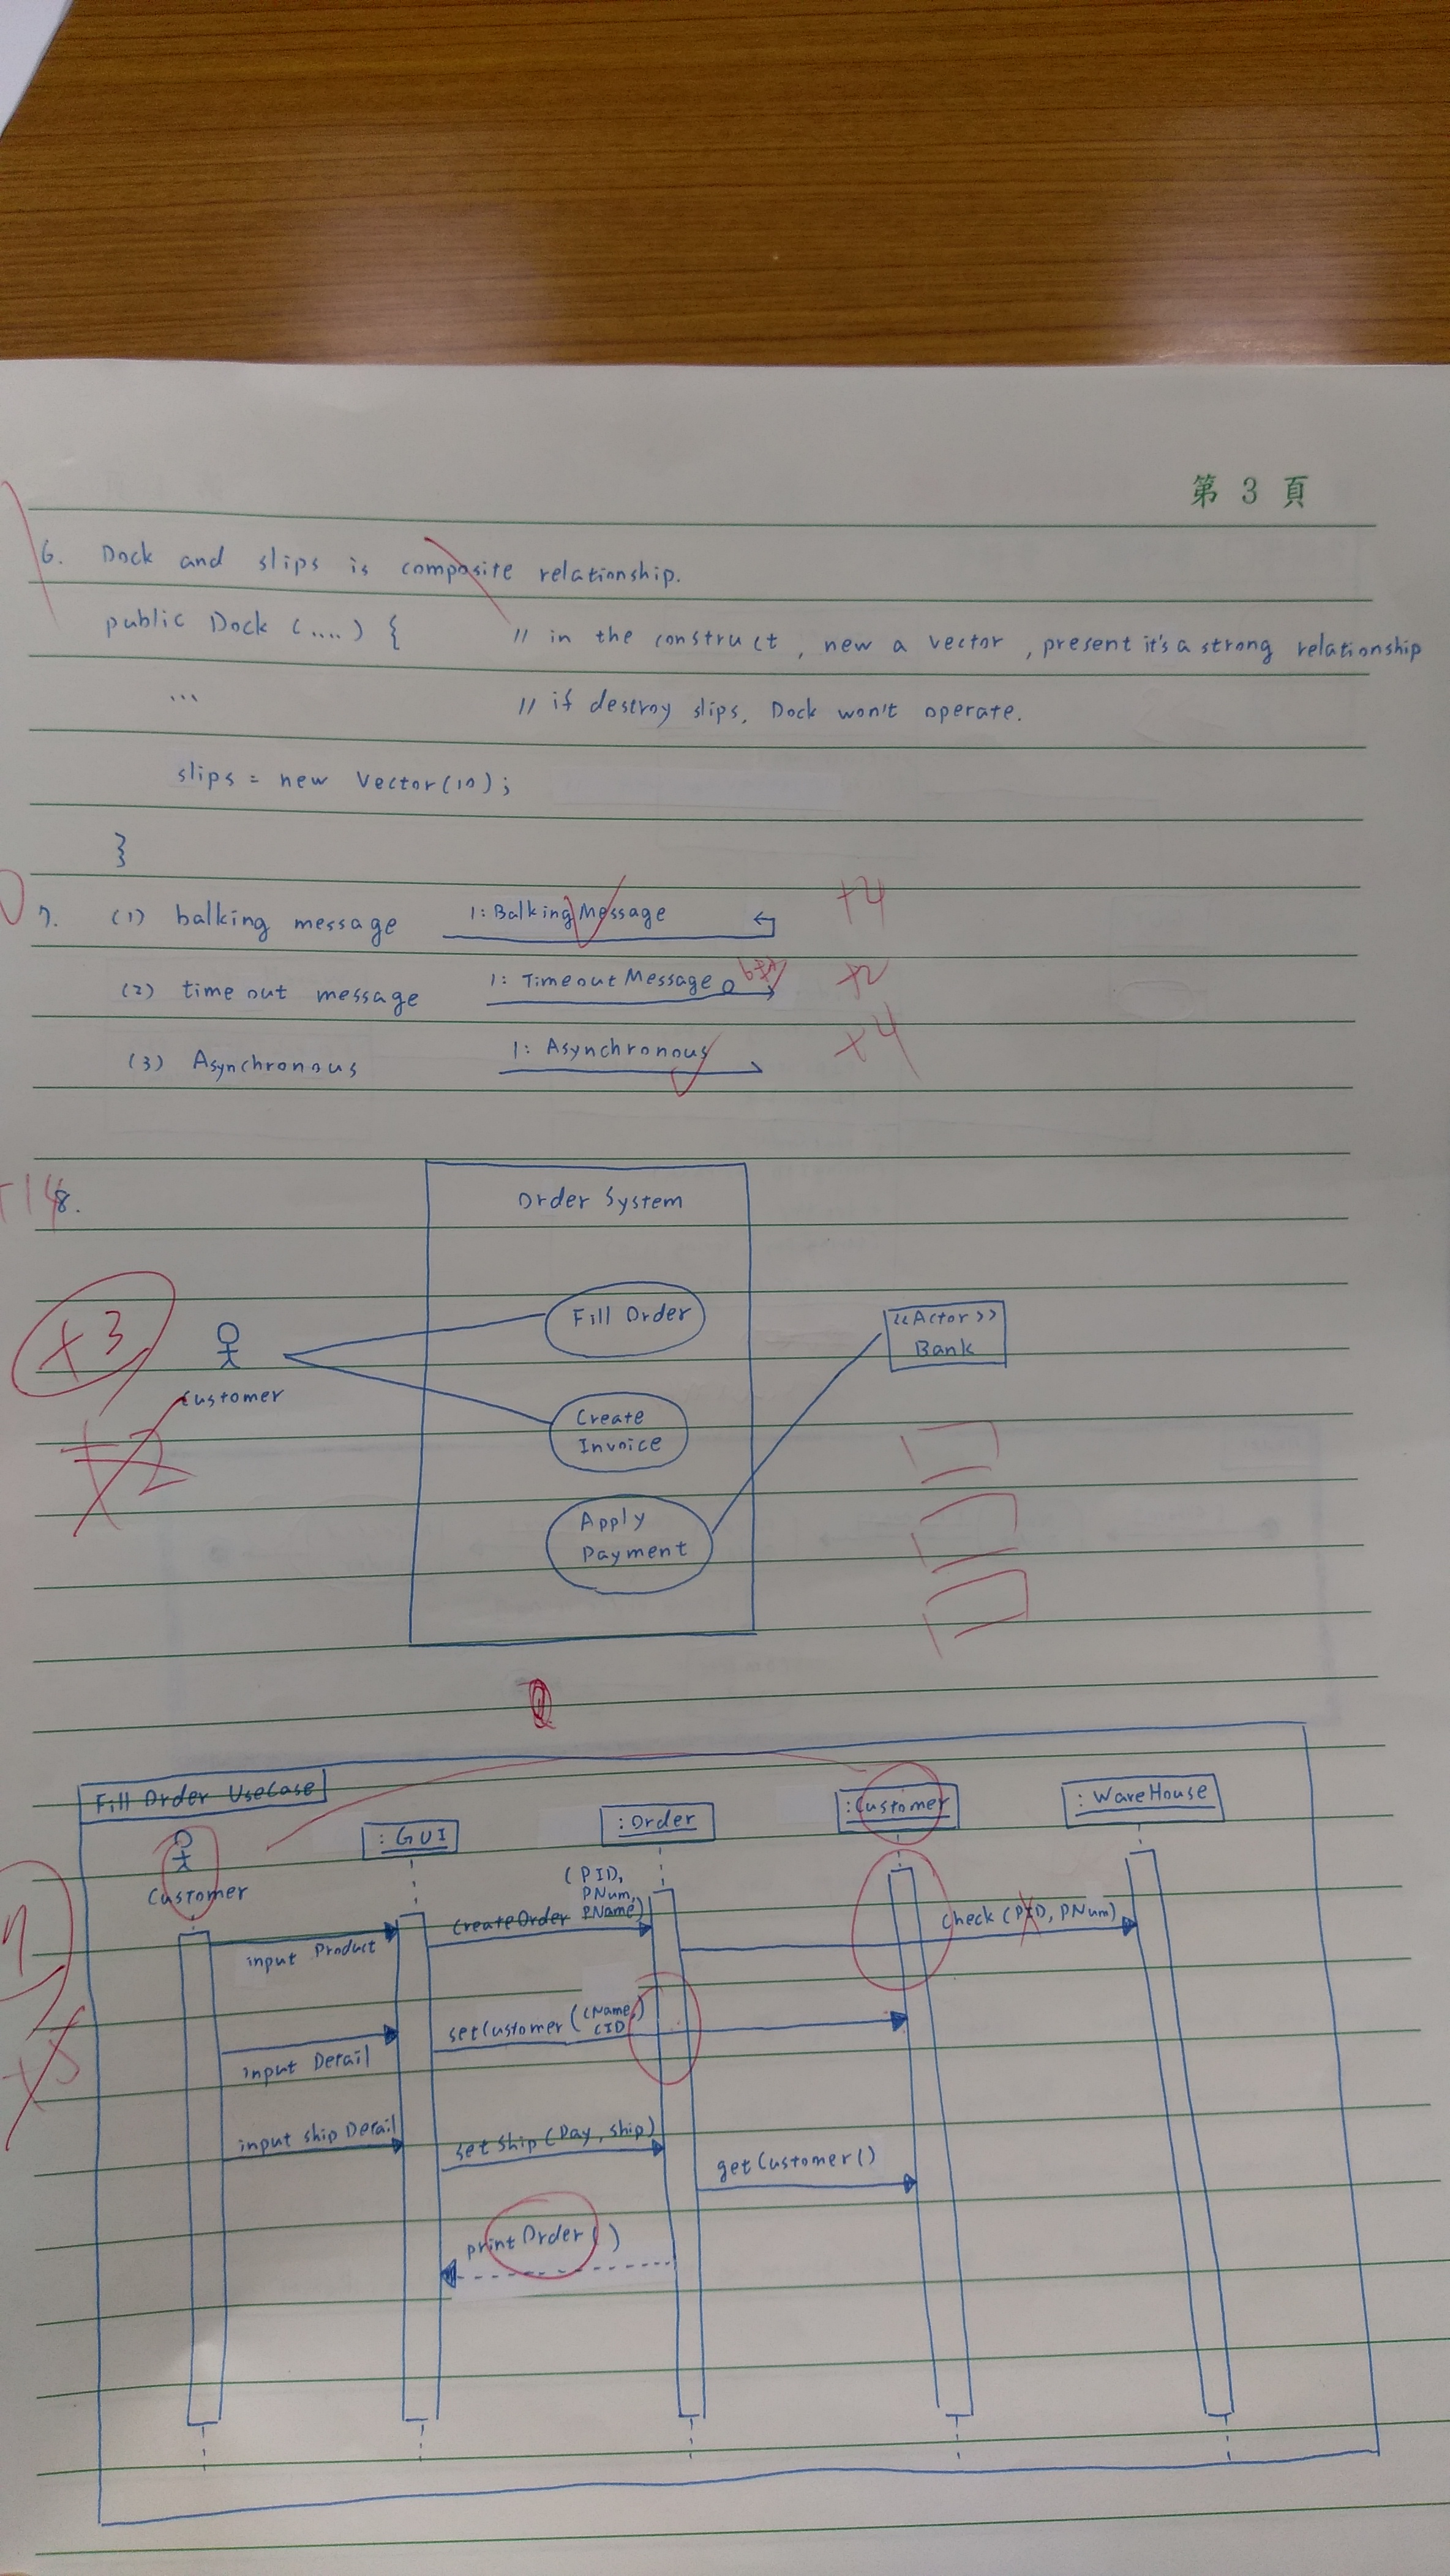 第 3 頁
6. Dock and slips is composite relationship.
public Dock (....) { // in the construct, new a vector, present it's a strong relationship
... // if destroy slips, Dock won't operate.
slips = new Vector(10);
}
7. (1) balking message 1: Balking Message +4
(2) time out message 1: Timeout Message +2
(3) Asynchronous 1: Asynchronous +4
+14
8.
Order System
+3
Fill Order
<<Actor>>
Bank
Customer
+2
Create
Invoice
Apply
Payment
Fill Order UseCase
:GUI
:Order
:Customer
:WareHouse
Customer
input Product
createOrder
(PID,
PNum,
PName)
check (PID, PNum)
input Detail
setCustomer (CName,
CID)
+5
input ship Detail
set ship (Day, ship)
getCustomer()
printOrder()